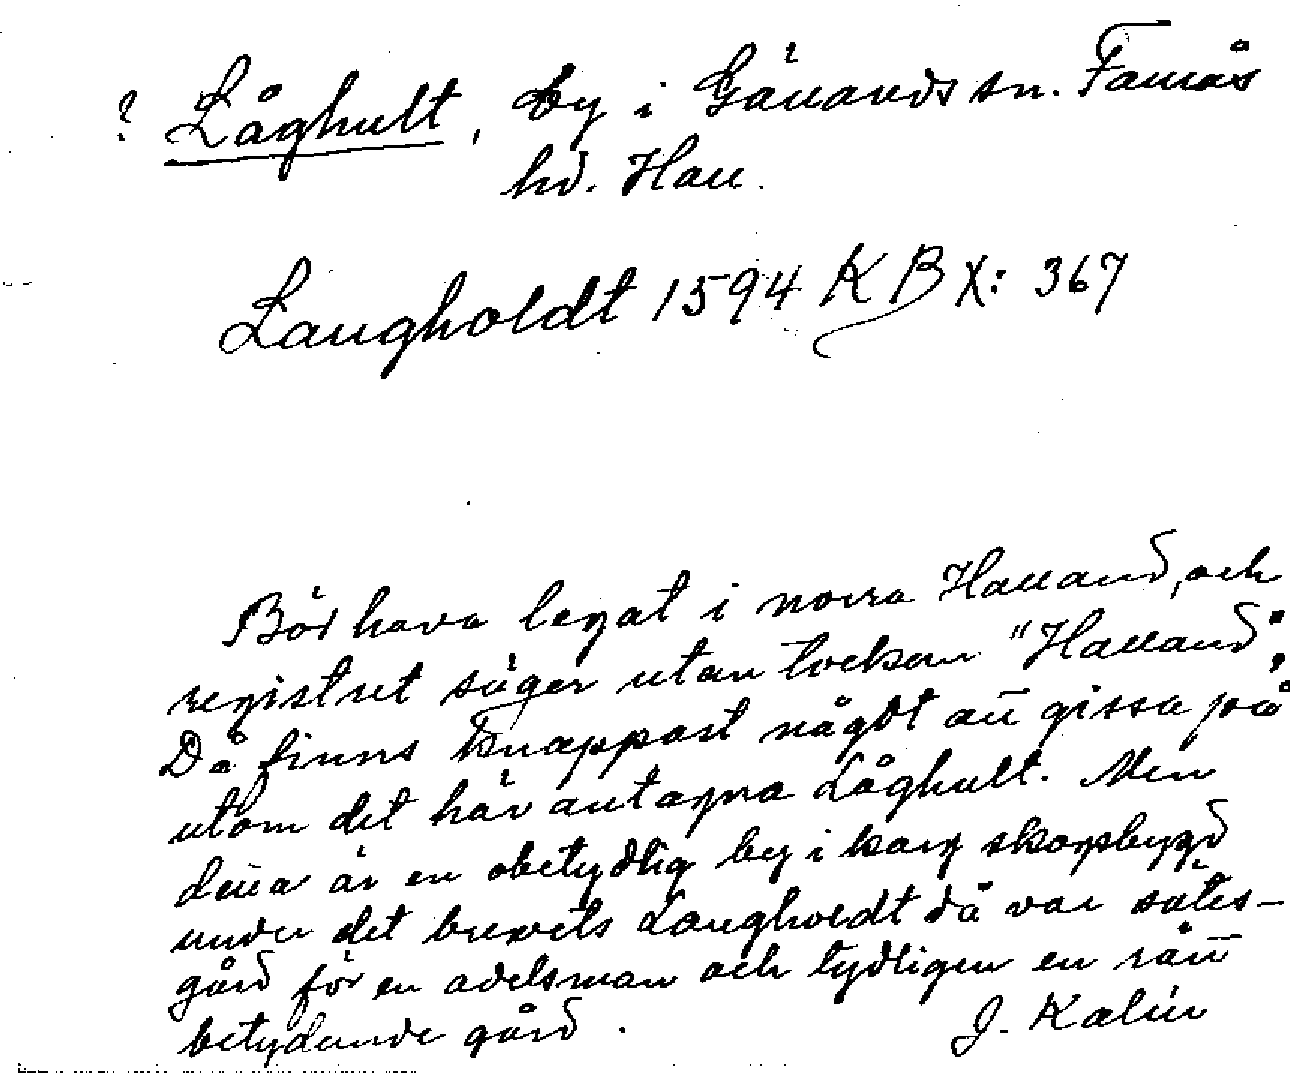 ? Låghult, by i Gällareds sn. Faurås
hd. Hall.
Laugholdt 1594 KB X: 367
Bör hava legat i norra Halland, och
registret säger utan tvekan "Halland".
Då finns knappast något att gissa på
utom det här antagna Låghult. Men
detta är en obetydlig by i karg skogsbygd
under det brevets Laugholdt då var sätes-
gård för en adelsman och tydligen en rätt
betydande gård.
J. Kalén